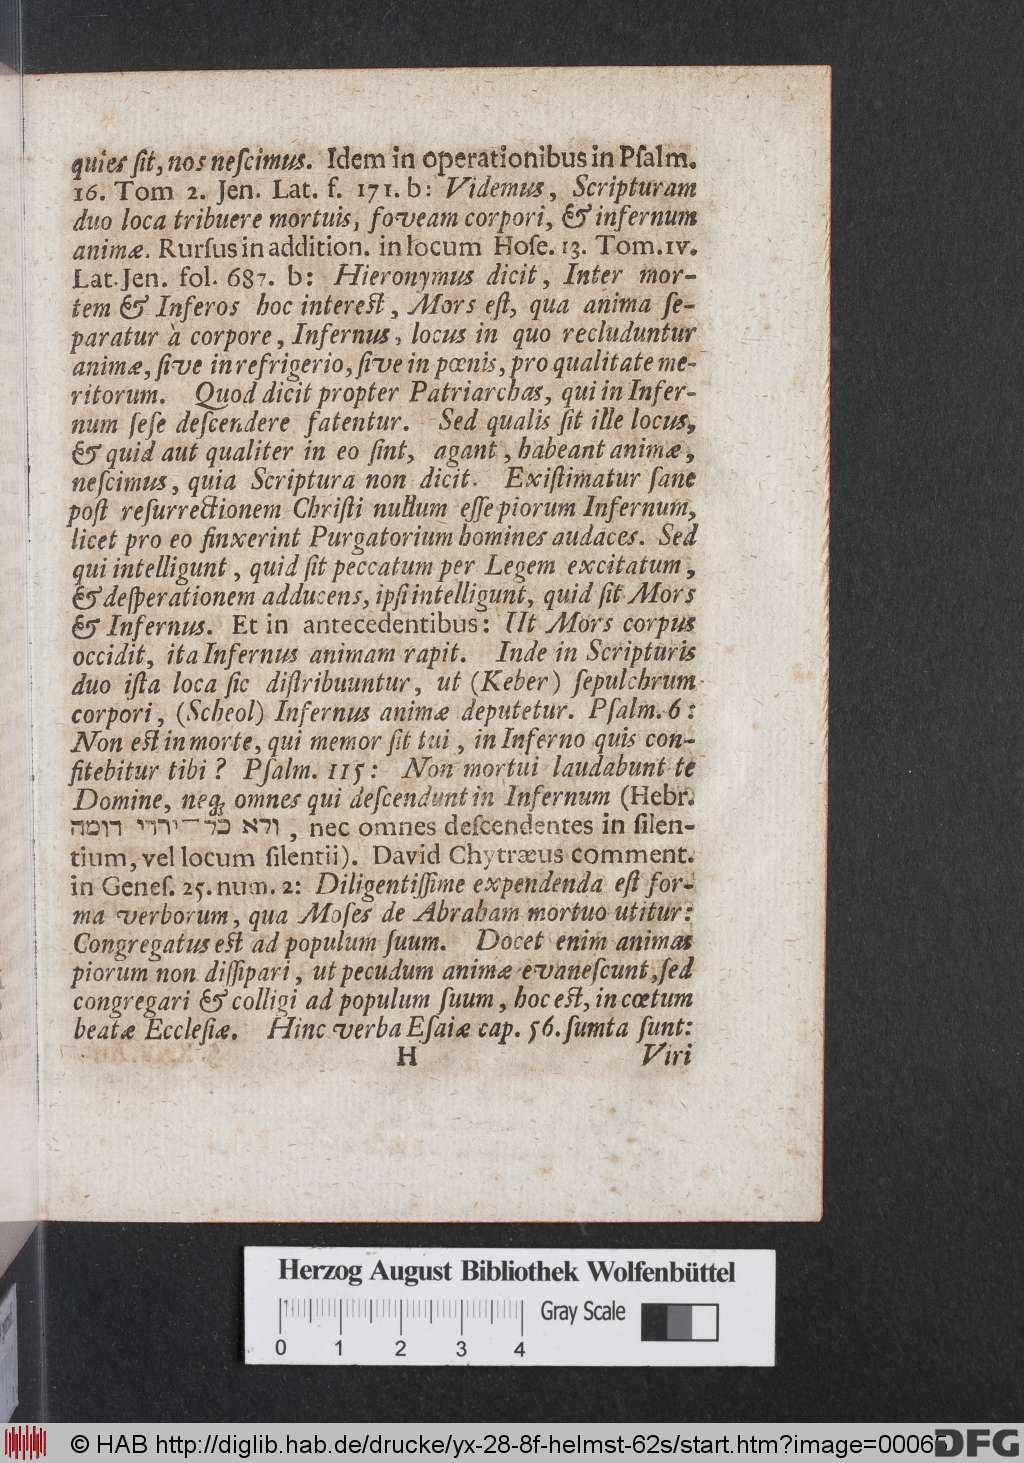 quies ſit, nos neſcimus. Idem in operationibus in Pſalm.
16. Tom 2. Jen. Lat. f. 171. b: Videmus, Scripturam
duo loca tribuere mortuis, foveam corpori, & infernum
animæ. Rurſus in addition. in locum Hoſe. 13. Tom. IV.
Lat. Jen. fol. 687. b: Hieronymus dicit, Inter mor-
tem & Inferos hoc intereſt, Mors eſt, qua anima ſe-
paratur à corpore, Infernus, locus in quo recluduntur
animæ, ſive in refrigerio, ſive in pœnis, pro qualitate me-
ritorum. Quod dicit propter Patriarchas, qui in Infer-
num ſeſe deſcendere fatentur. Sed qualis ſit ille locus,
& quid aut qualiter in eo ſint, agant, habeant animæ,
neſcimus, quia Scriptura non dicit. Exiſtimatur ſane
poſt reſurrectionem Chriſti nullum eſſe piorum Infernum,
licet pro eo finxerint Purgatorium homines audaces. Sed
qui intelligunt, quid ſit peccatum per Legem excitatum,
& deſperationem adducens, ipſi intelligunt, quid ſit Mors
& Infernus. Et in antecedentibus: Ut Mors corpus
occidit, ita Infernus animam rapit. Inde in Scripturis
duo iſta loca ſic diſtribuuntur, ut (Keber) ſepulchrum
corpori, (Scheol) Infernus animæ deputetur. Pſalm. 6:
Non eſt in morte, qui memor ſit tui, in Inferno quis con-
fitebitur tibi? Pſalm. 115: Non mortui laudabunt te
Domine, neq; omnes qui deſcendunt in Infernum (Hebr.
ולא כל־יררי דומה, nec omnes deſcendentes in ſilen-
tium, vel locum ſilentii). David Chytræus comment.
in Geneſ. 25. num. 2: Diligentiſſime expendenda eſt for-
ma verborum, qua Moſes de Abraham mortuo utitur:
Congregatus eſt ad populum ſuum. Docet enim animas
piorum non diſſipari, ut pecudum animæ evaneſcunt, ſed
congregari & colligi ad populum ſuum, hoc eſt, in cœtum
beatæ Eccleſiæ. Hinc verba Eſaiæ cap. 56. ſumta ſunt:
H Viri
Herzog August Bibliothek Wolfenbüttel
Gray Scale
0 1 2 3 4
© HAB http://diglib.hab.de/drucke/yx-28-8f-helmst-62s/start.htm?image=00065
DFG